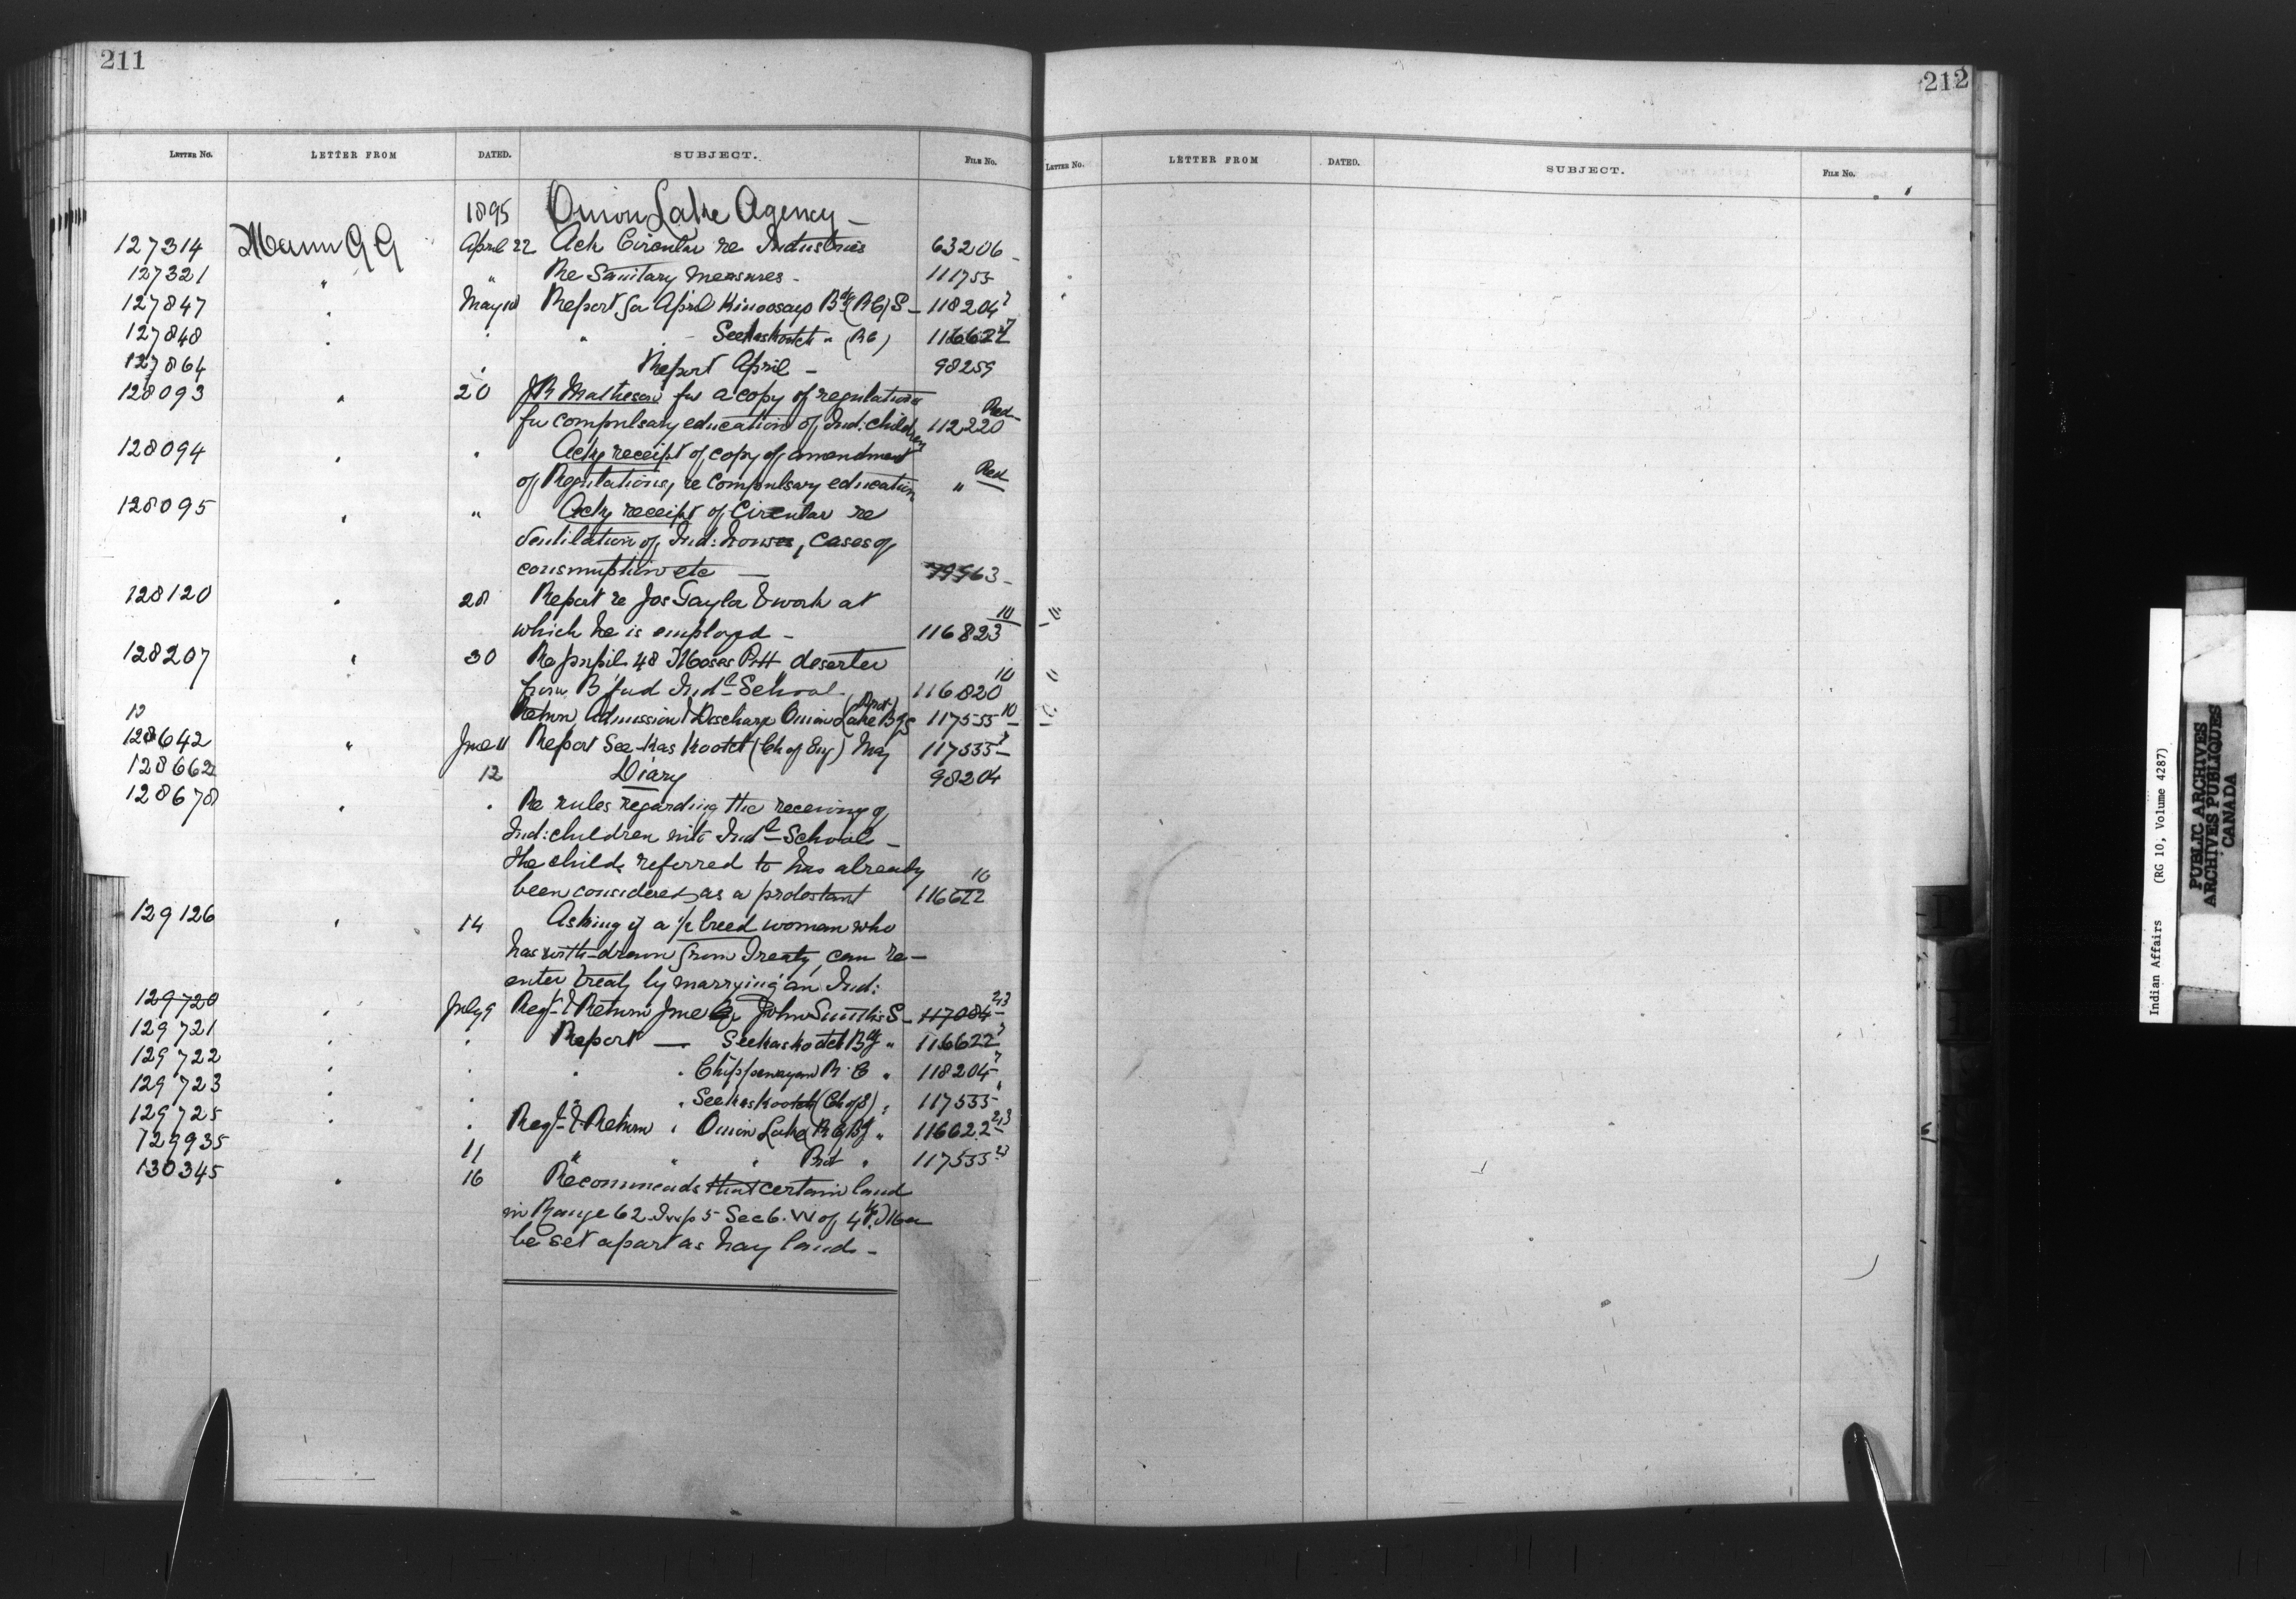 211
212
LETTER NO. LETTER FROM DATED. SUBJECT. FILE NO.
LETTER NO. LETTER FROM DATED. SUBJECT. FILE NO.
1895 Onion Lake Agency –
127314 Mann G G April 22 Ack Circular re Industries 63206 –
127321 " " Re Sanitary Measures – 111755
127847 " May 10 Report for April Kinoosayo Bdg (RC) S – 118204 7
127848 " " " Seekaskootch " (RC) 116622 7
127864 " Report April – 98259
128093 " 20 J R Matheson for a copy of regulations
for compulsary education of Ind: children 112220 Red
128094 " " Ackg receipt of copy of amendment
of Regulations, re Compulsary education " Red
128095 " " Ackg receipt of Circular re
Ventilation of Ind: houses, cases of
consumption etc –
128120 " 28 Report re Jos Taylor & work at
which he is employed – 116823 10
128207 " 30 Re pupil 48 Moses Pitt deserter
from B'ford Indl School 116820 10
Return Admission & Discharge Onion Lake Bdg S (Prot) 117535 10
128642 " June 11 Report See-kas-kootch (Ch of Eng) May 117535 7
128662 12 Diary 98204
128678 " " Re rules regarding the receiving of
Ind: children into Indl School –
The child referred to has already
been considered as a protestant 116622 10
129126 " 14 Asking if a ½ breed woman who
has with-drawn from Treaty, can re–
enter treaty by marrying an Ind:
129720 " July 9 Reqt & Return June John Smith's S – 117084 23
129721 " " Report — Seekaskootch Bdg " 116622 7
129722 " " " " Chippewayan R. C " 118204 7
129723 " " " Seekaskootch (Ch of E) " 117535
129725 " " Reqt & Return " Onion Lake (RC) Bdg " 116622 23
129935 11 " " " Prot " 117535 23
130345 " 16 Recommends that certain land
in Range 62 Twp 5 Sec 6. W of 4th Mer
be set apart as hay land. –
Indian Affairs (RG 10, Volume 4287)
PUBLIC ARCHIVES
ARCHIVES PUBLIQUES
CANADA